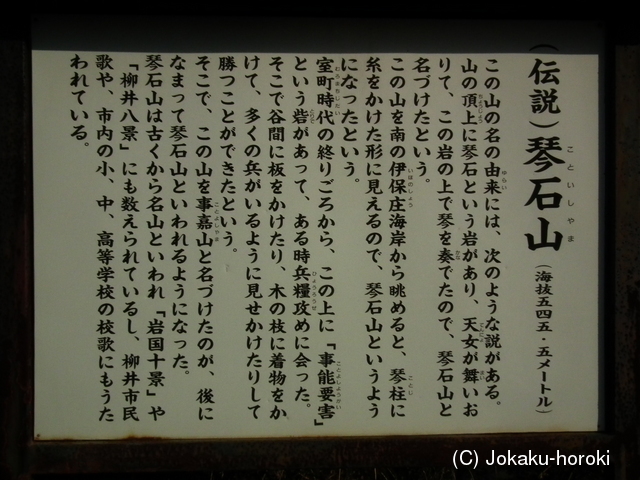 (伝説)琴石山(海抜五四五・五メートル)
ことい​しやま
この山の名の由来には、次のような説がある。
山の頂上に琴石という岩があり、天女が舞いお
りて、この岩の上で琴を奏でたので、琴石山と
名づけたという。
この山を南の伊保庄海岸から眺めると、琴柱に
糸をかけた形に見えるので、琴石山というよう
になったという。
室町時代の終りごろから、この上に「事能要害」
という砦があって、ある時兵糧攻めに会った。
そこで谷間に板をかけたり、木の枝に着物をか
けて、多くの兵がいるように見せかけたりして
勝つことができたという。
そこで、この山を事嘉山と名づけたのが、後に
なまって琴石山といわれるようになった。
琴石山は古くから名山といわれ「岩国十景」や
「柳井八景」にも数えられているし、柳井市民
歌や、市内の小、中、高等学校の校歌にもうた
われている。
(C) Jokaku-horoki